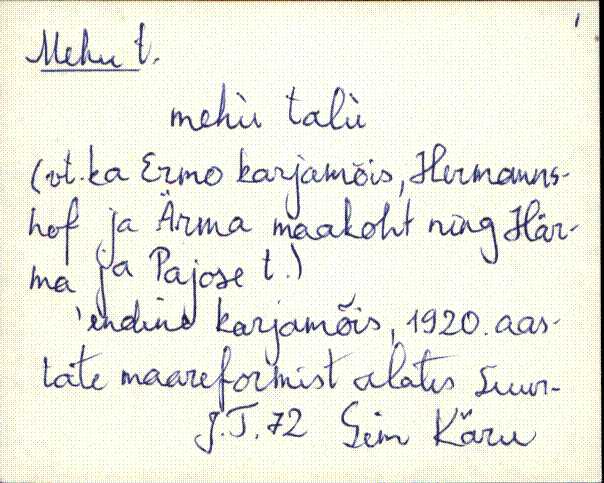 Mehu t.
mehù talù
(vt. ka Ermo karjamõis, Hermanns-
hof ja Ärma maakoht ning Här-
ma ja Pajose t.)
'endine karjamõis, 1920. aas-
tate maareformist alates Suur-
J.T.72 Seim Käru